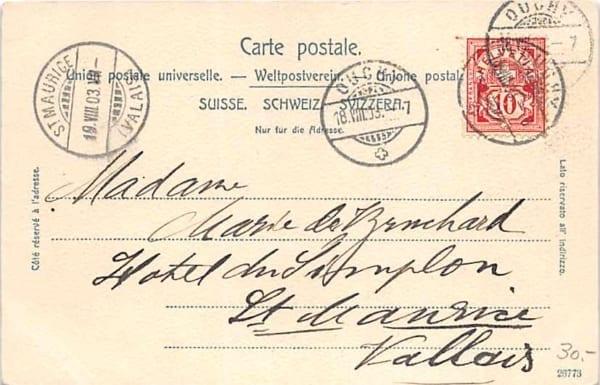 Carte postale.
Union postale universelle. — Weltpostverein. — Unione postale
SUISSE. SCHWEIZ. SVIZZERA.
Nur für die Adresse.
OUCHY
ST MAURICE
19.VIII.03.VII-
(VALAIS)
OUCHY
18.VIII.03. 7
OUCHY
HELVETIA
10
Côté réservé à l'adresse.
Lato riservato all' indirizzo.
Madame
Marie de
Hotel du Simplon
St Maurice
Vallais
30.-
26773